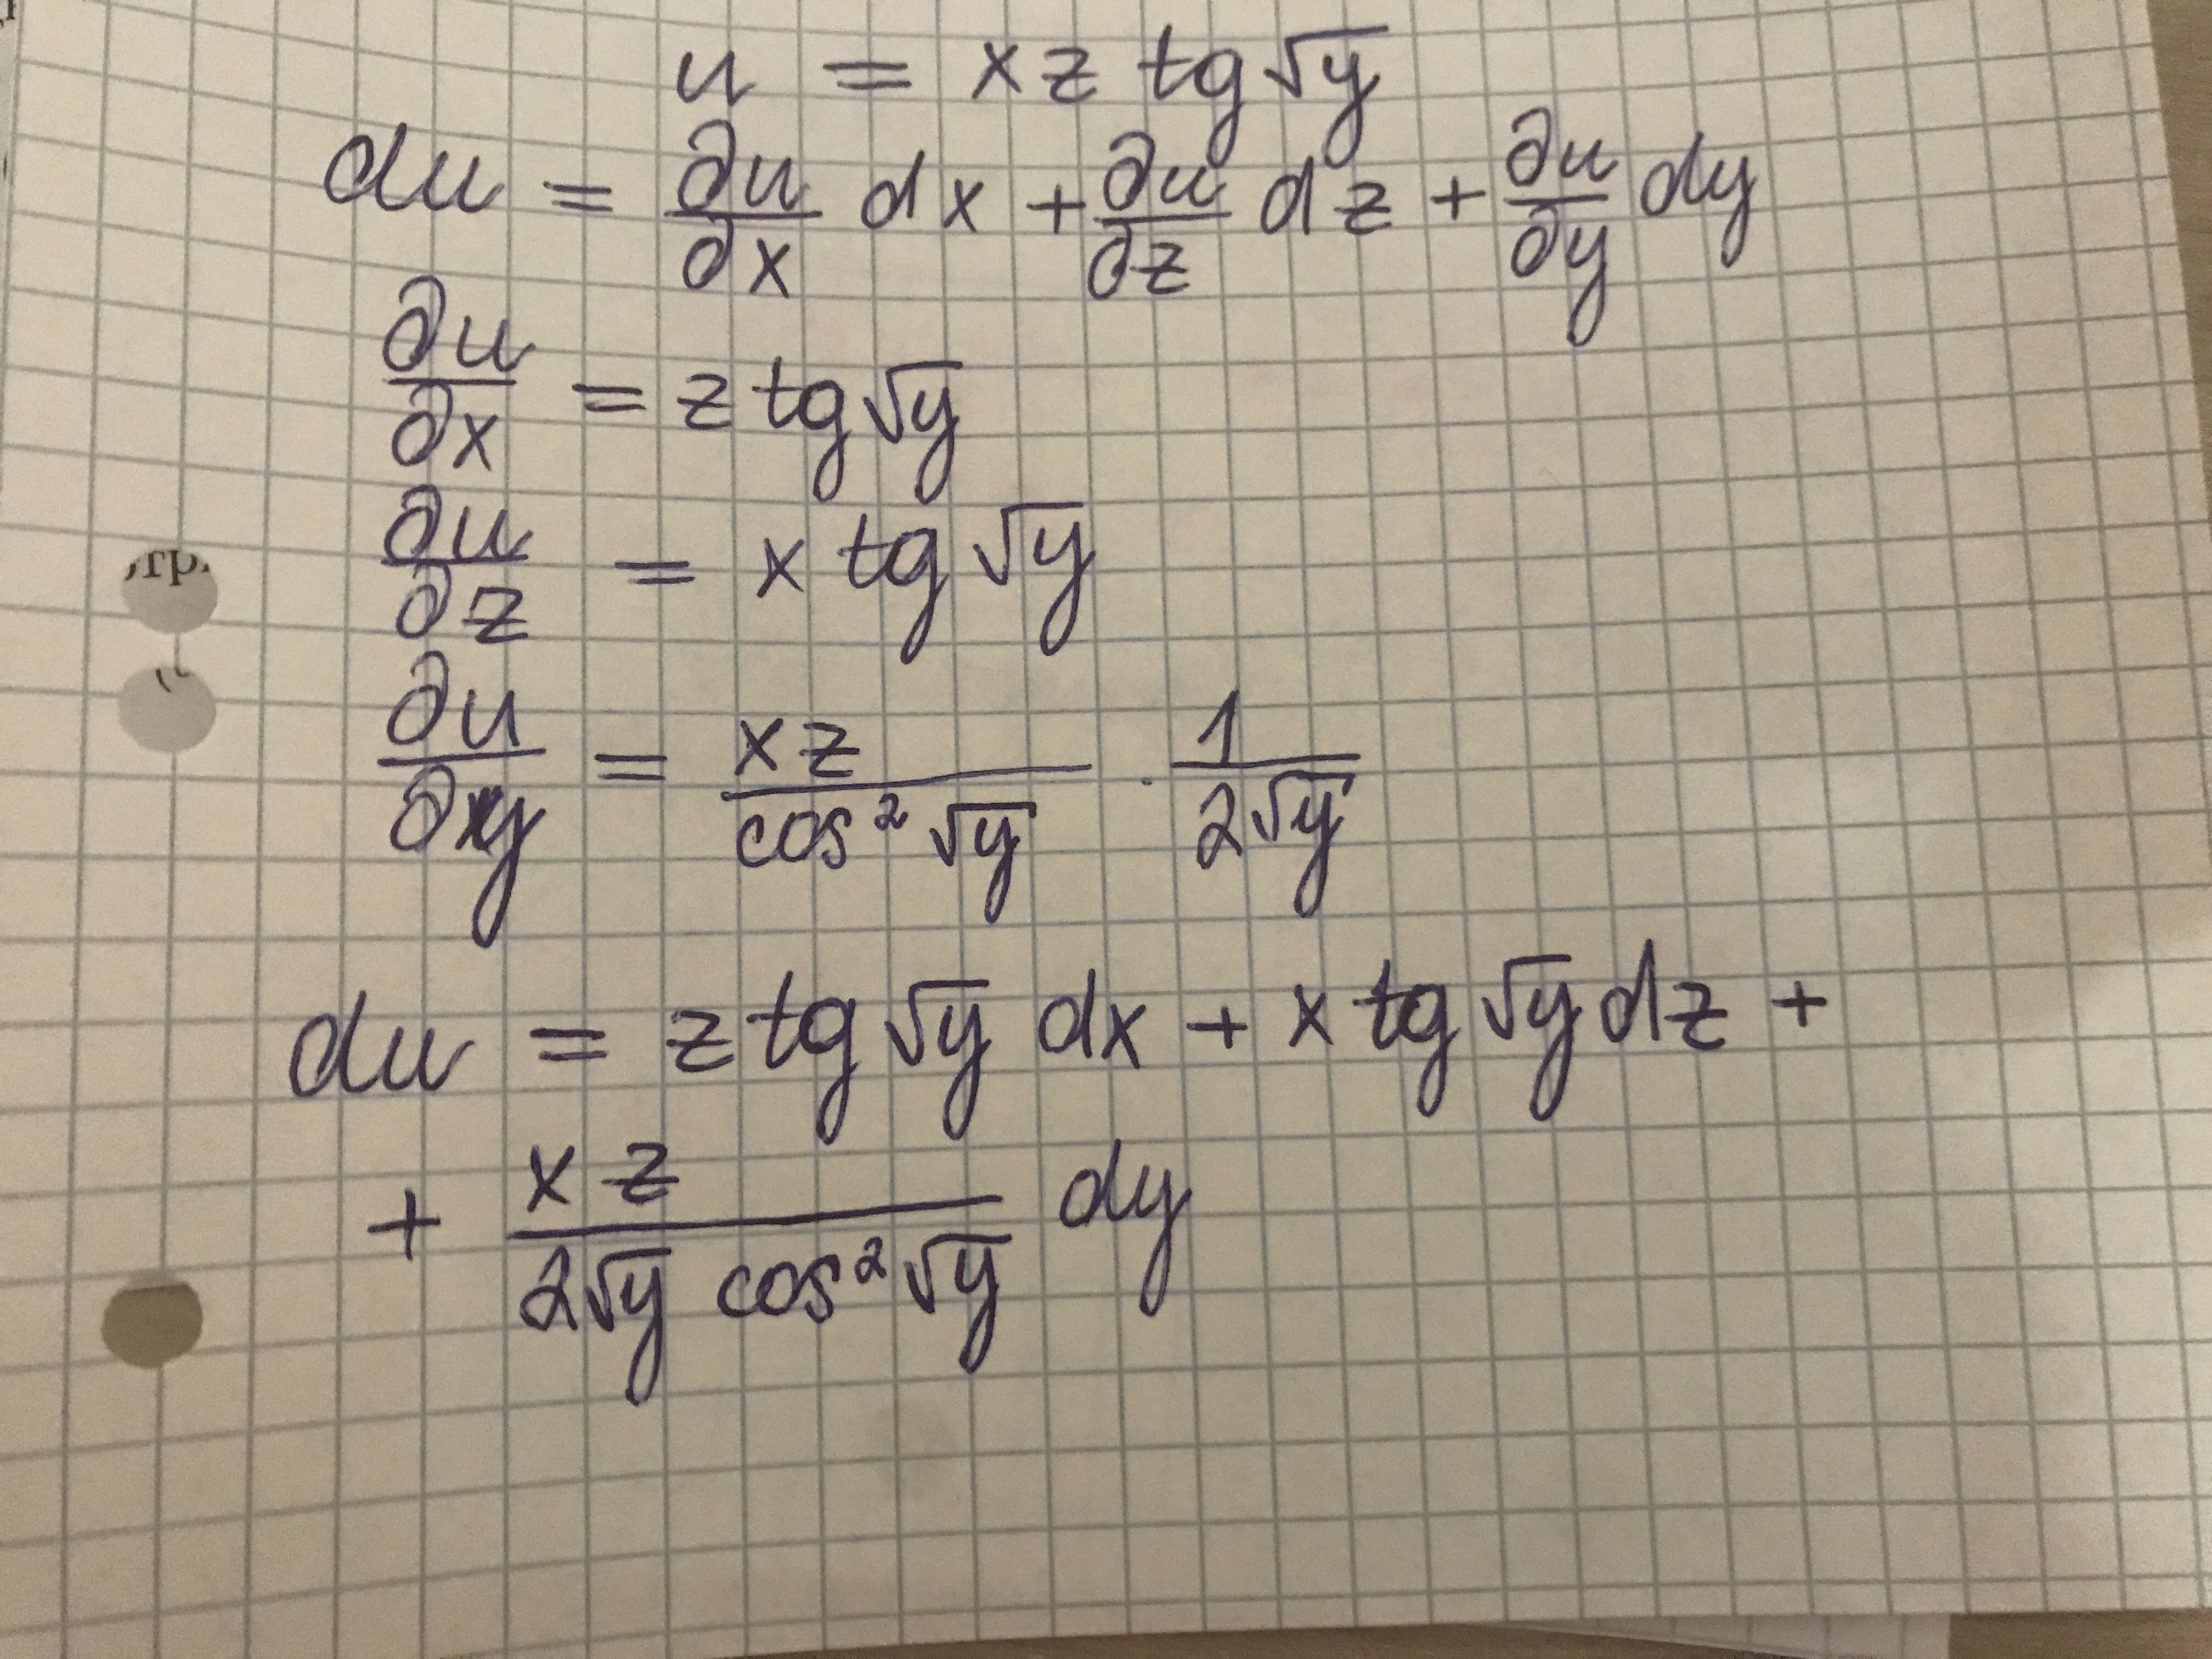 u = x z tg √y
du = ∂u/∂x dx + ∂u/∂z dz + ∂u/∂y dy
∂u/∂x = z tg √y
∂u/∂z = x tg √y
∂u/∂y = x z / cos² √y · 1 / 2√y
du = z tg √y dx + x tg √y dz +
+ x z / 2√y cos² √y dy